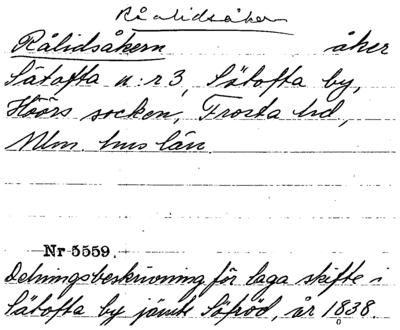 Råalidsåkern
Rålidsåkern åker
Sätofta n:r 3, Sätofta by,
Höörs socken, Frosta hd,
Mlm. hus län.
Nr 5559.
Delningsbeskrivning för laga skifte i
Sätofta by jämte Sjöröd, år 1838.